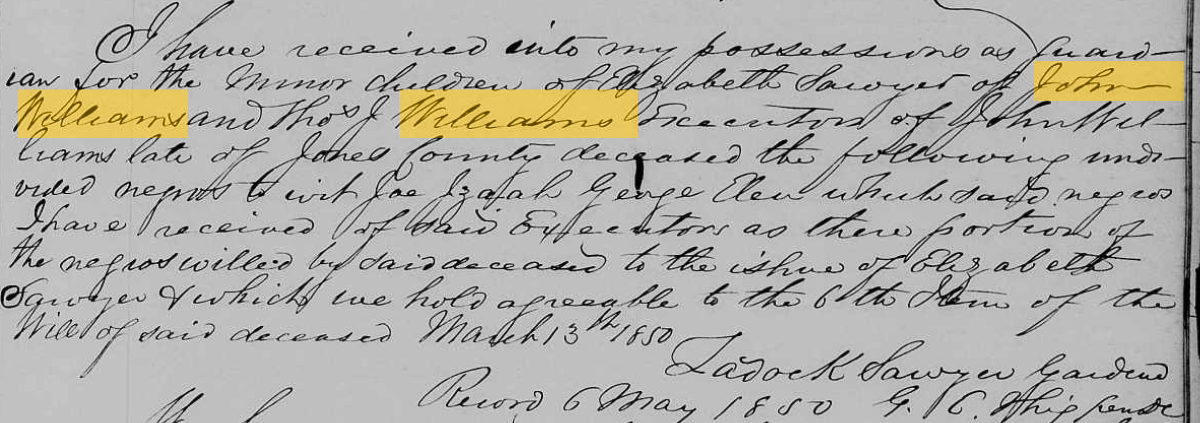 I have received into my possessions as guard-
ian for the Minor children of Elizabeth Sawyer of John
Williams and Thos J Williams Executors of John Wil-
liams late of Jones County deceased the following undi-
vided negros to wit Joe Izaiah George Elen which said negros
I have received of said Executors as there portion of
the negros willed by said deceased to the ishue of Elizabeth
Sawyer & which we hold agreeable to the 6th Item of the
Will of said deceased March 13th 1850
Zadock Sawyer Gardend
Record 6 May 1850 G. C.